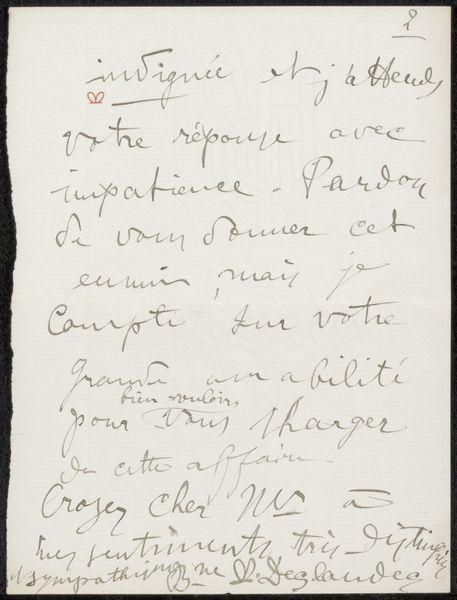 2
indignée et j'attends
votre réponse avec
impatience. Pardon
de vous donner cet
ennui, mais je
compte sur votre
grande amabilité
bien vouloir
pour vous charger
de cette affaire.
Croyez cher Mr à
mes sentiments très distingués
et sympathiques Bne D. Deslandes